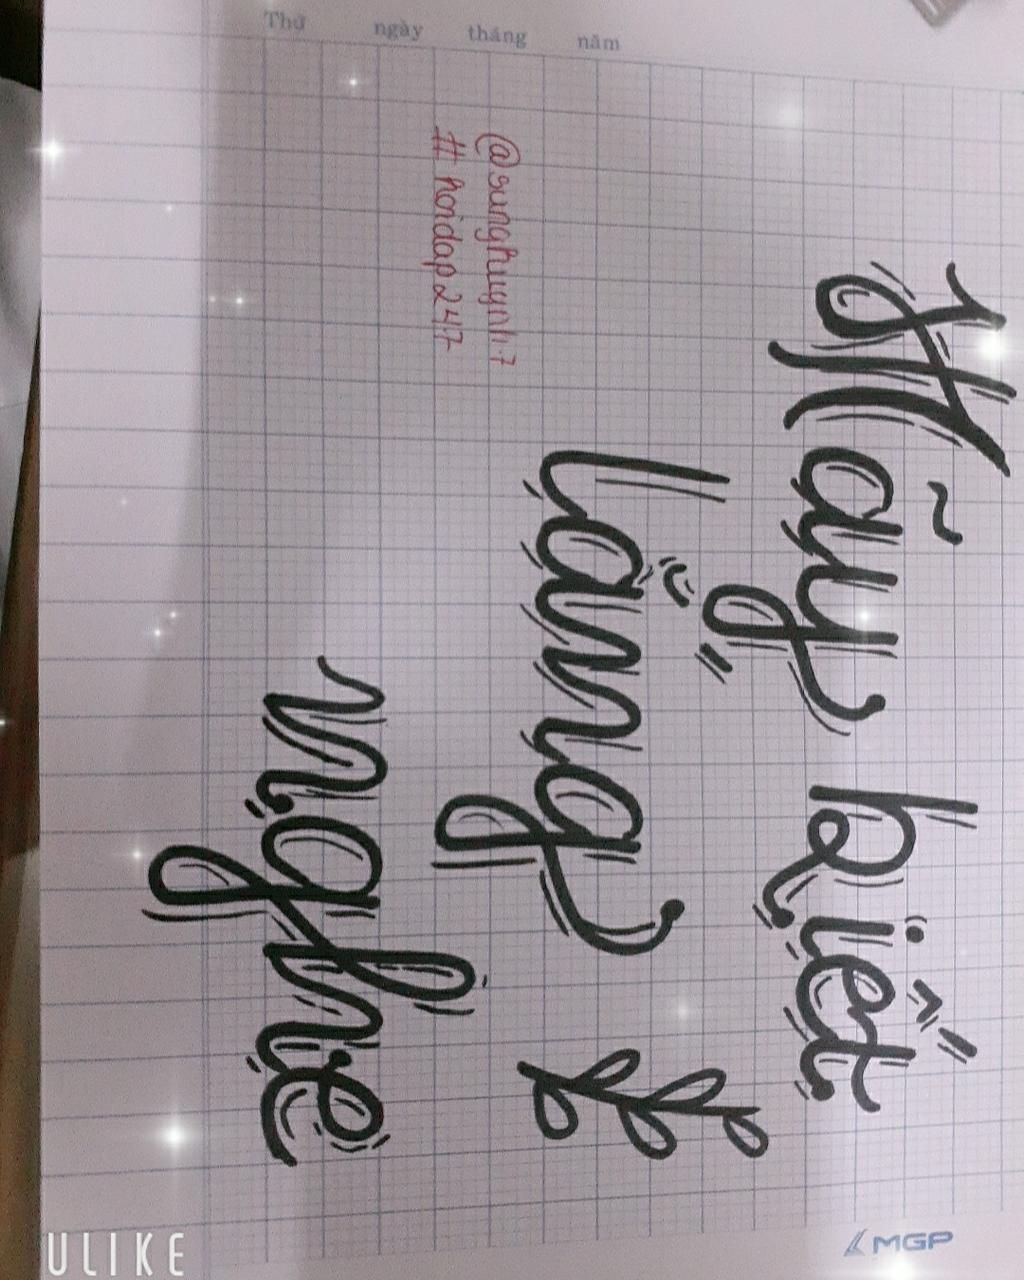 Thứ ngày tháng năm
Hãy biết
lắng
nghe
@sunghuynh.7
#hoidap247
MGP
ULIKE